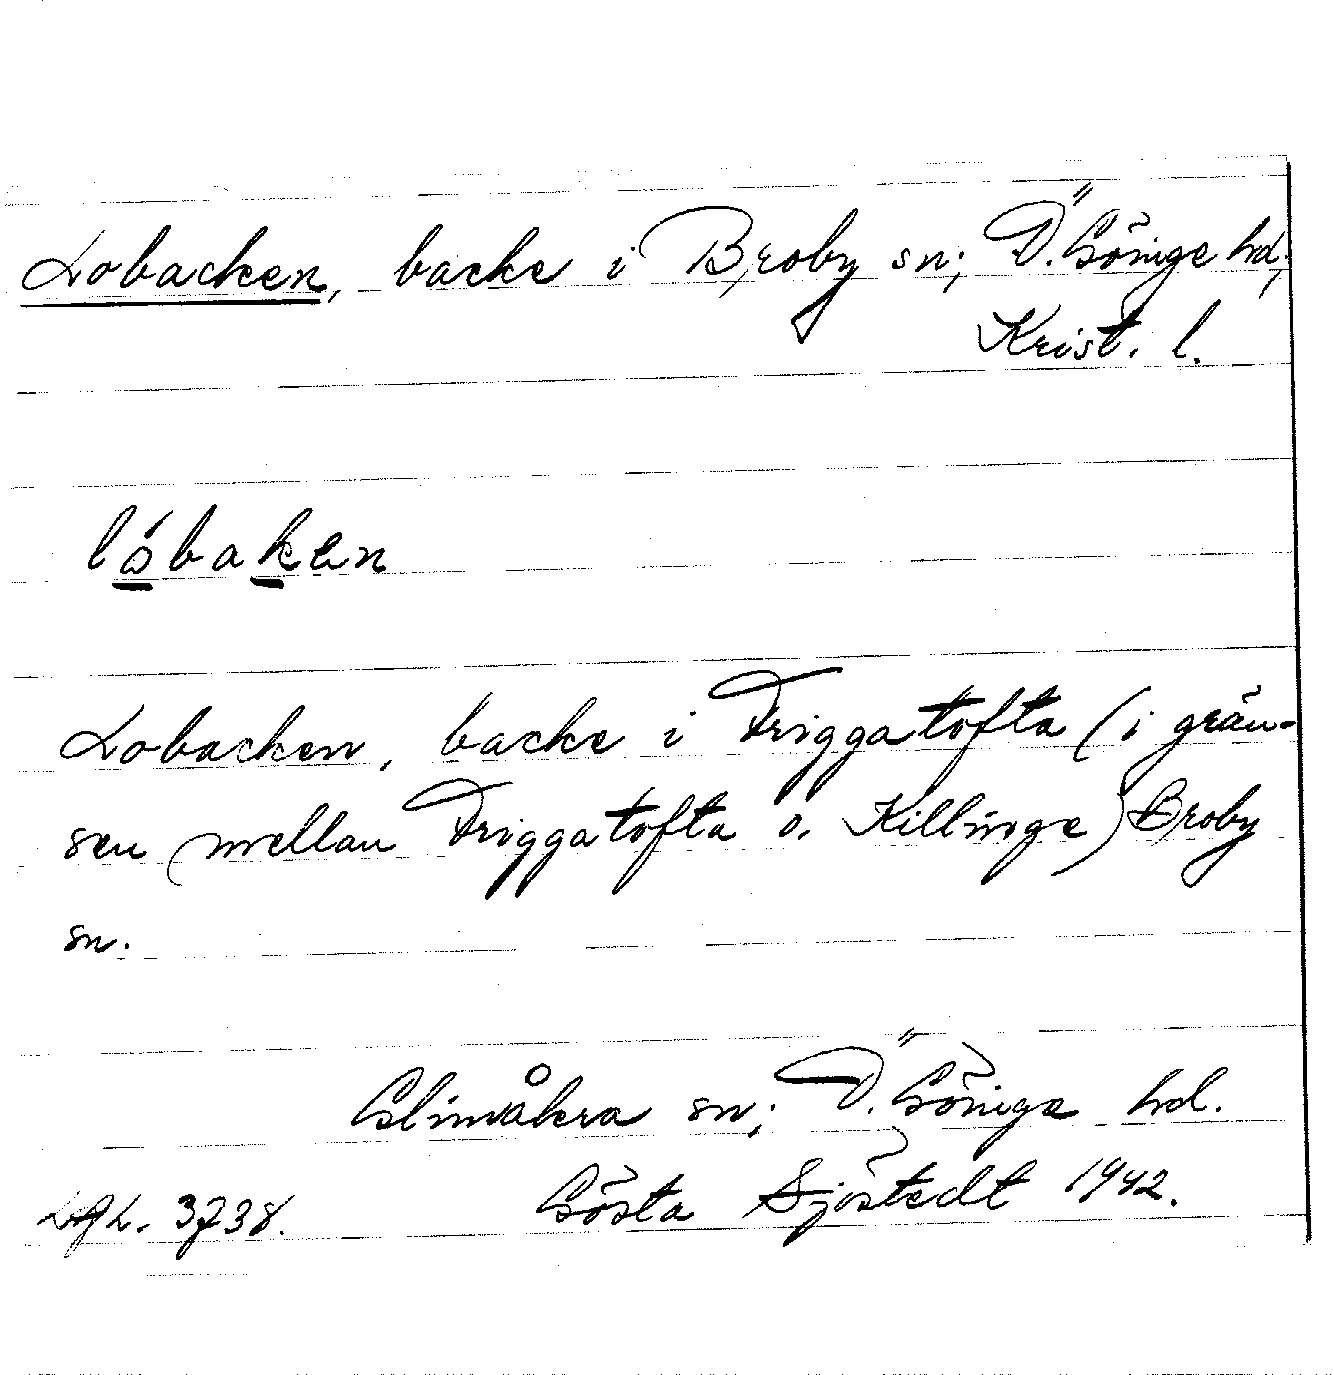 Lobacken, backe i Broby sn; Ö. Göinge hd;
Krist. l.
lóbaken
Lobacken, backe i Friggatofta (i grän-
sen mellan Friggatofta o. Killinge) Broby
sn.
Glimåkra sn; Ö. Göinge hd.
Gösta Sjöstedt 1942.
LAL. 3738.